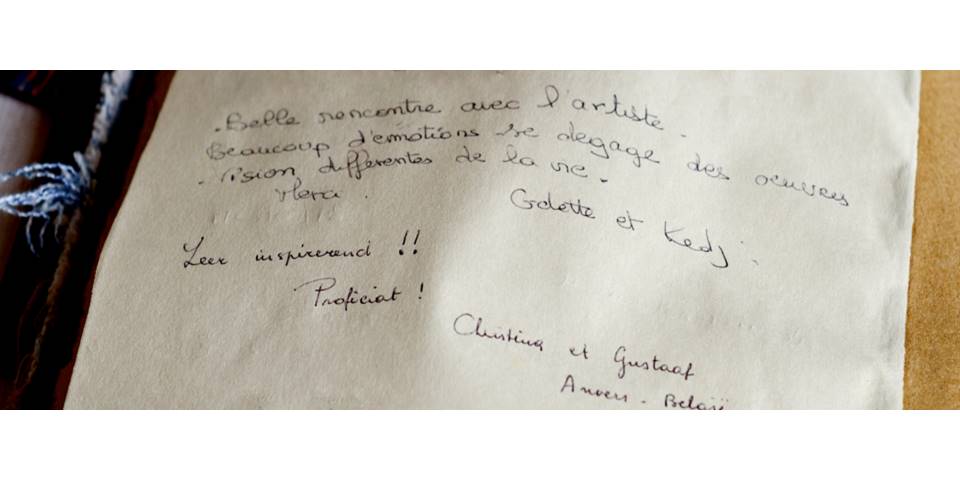 . Belle rencontre avec l'artiste.
Beaucoup d'emotions se degage des oeuvres
. Vision differentes de la vie.
Golette et
Zeer inspirerend !!
Proficiat !
Christina et Gustaaf
Anvers - België